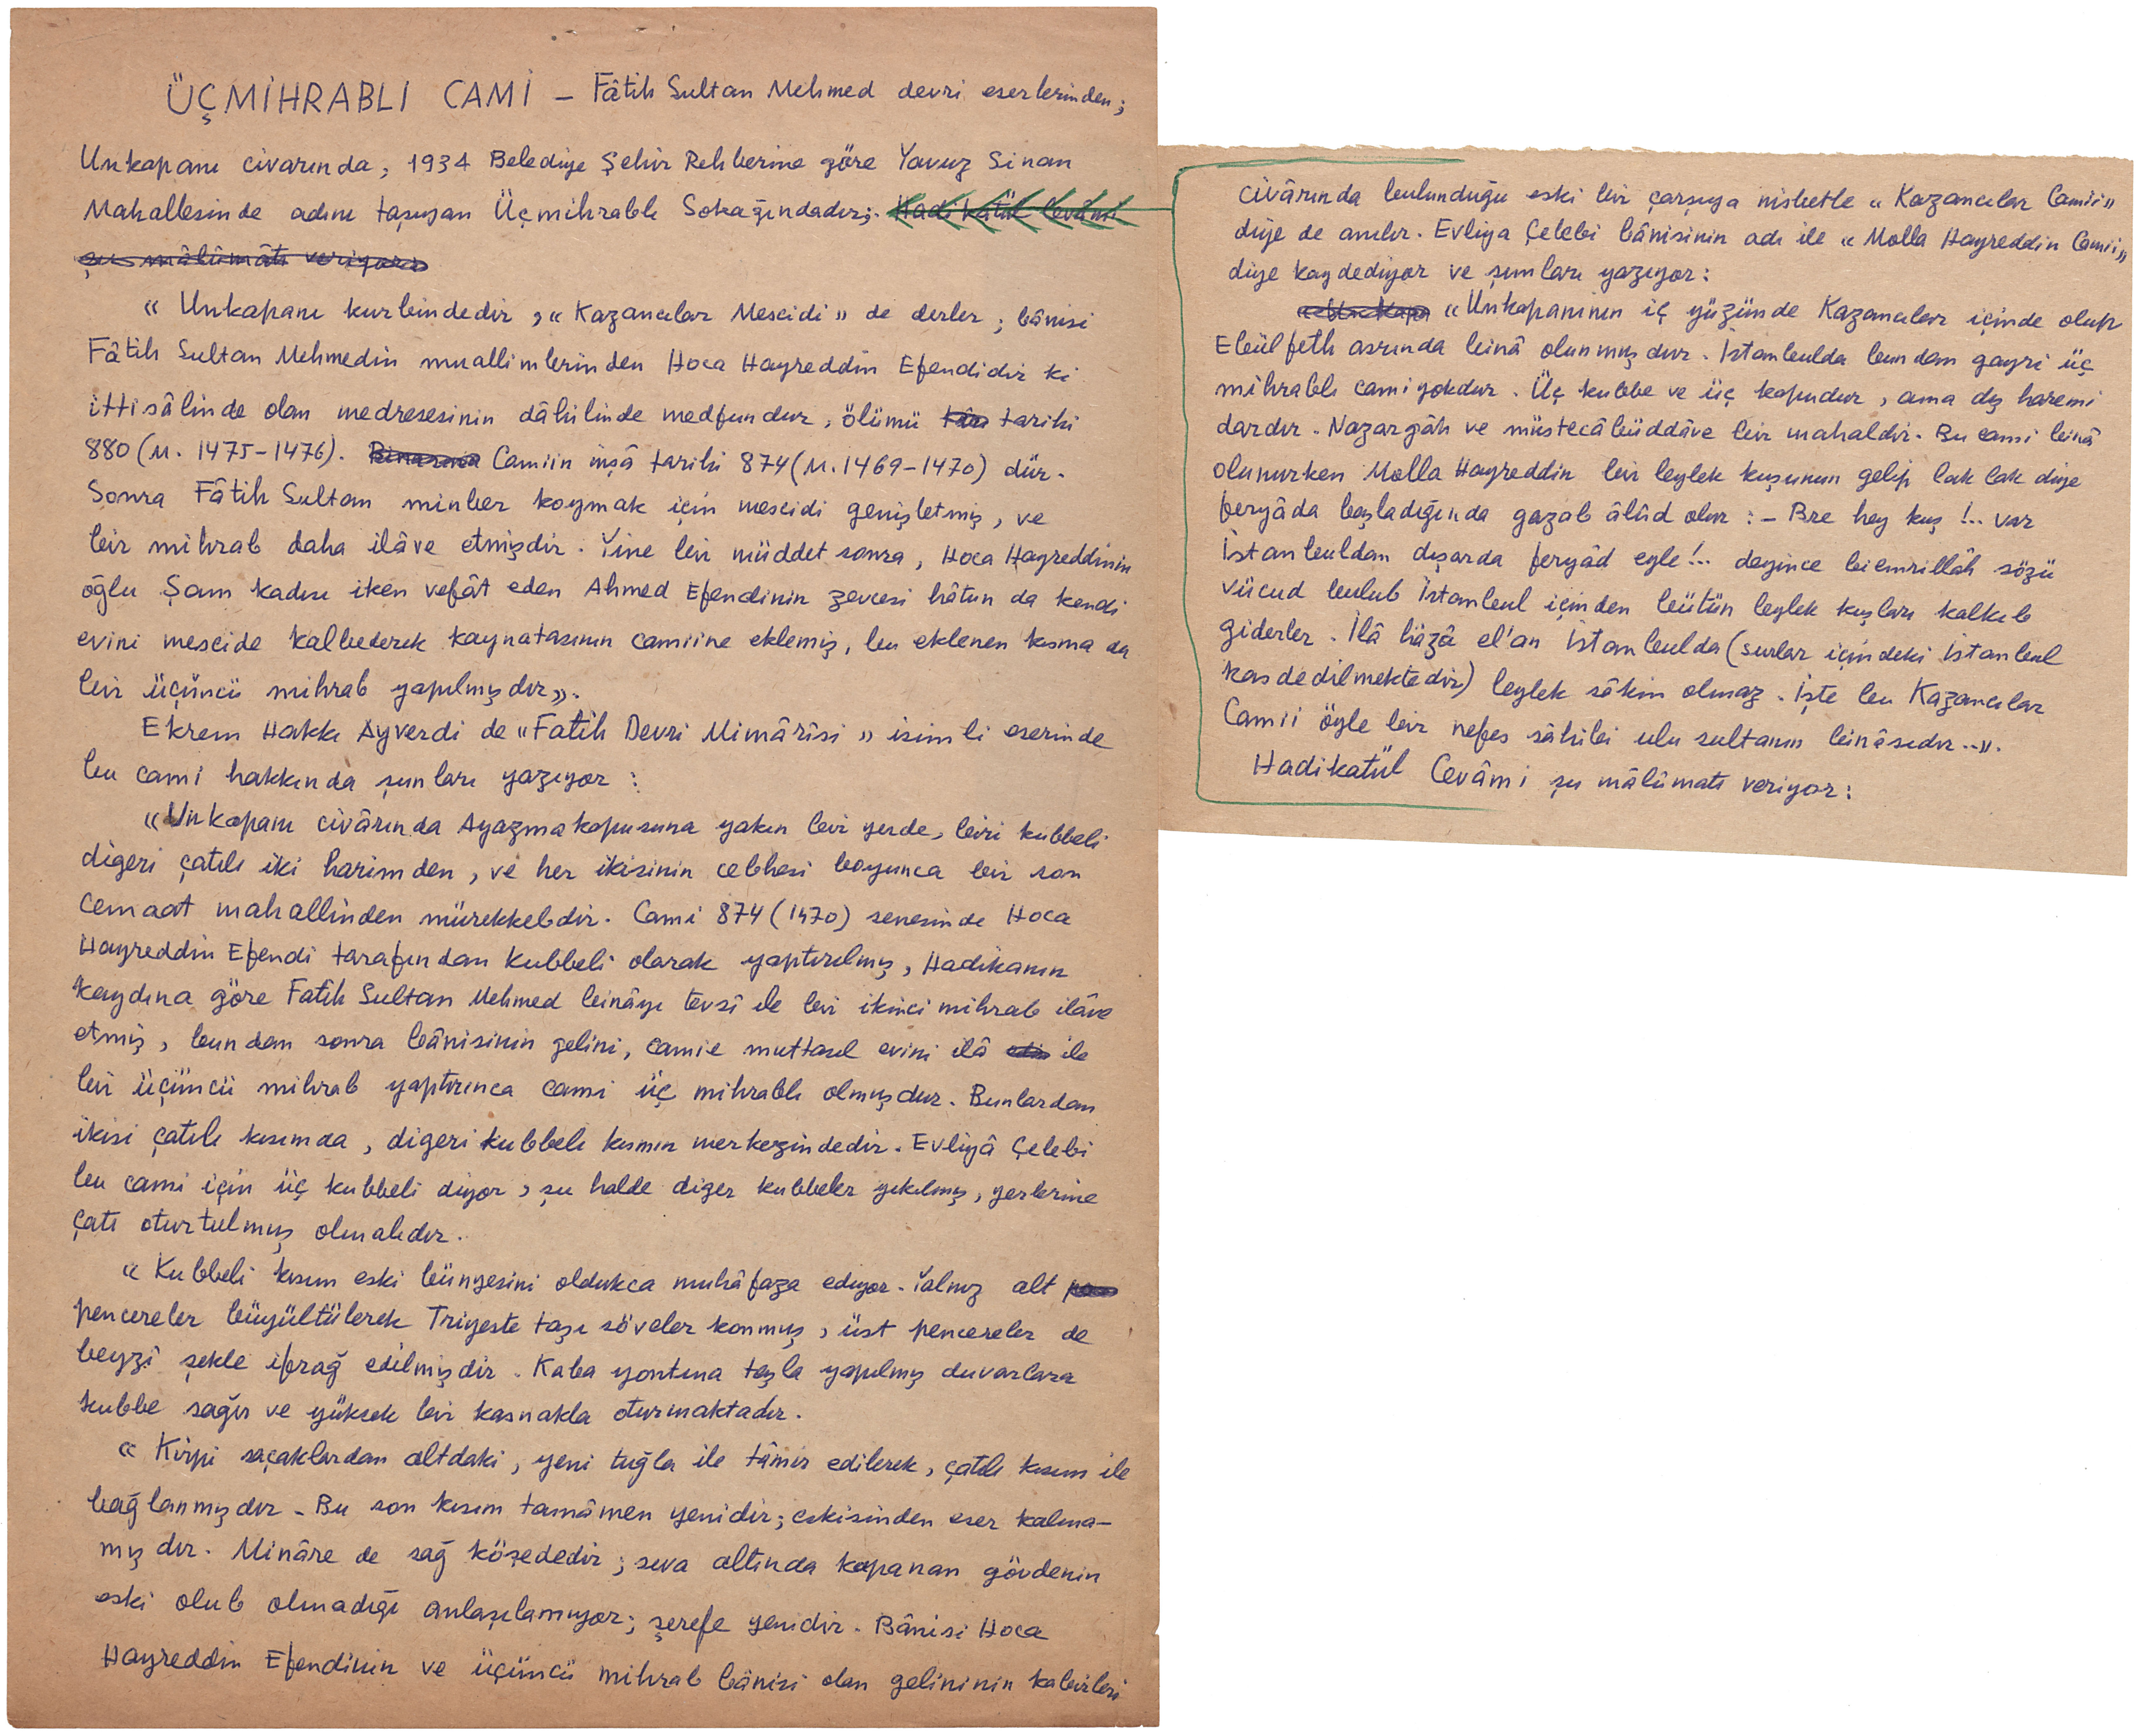 ÜÇMİHRABLI CAMİ – Fâtih Sultan Mehmed devri eserlerinden;
Unkapanı civarında, 1934 Belediye Şehir Rehberine göre Yavuz Sinan
Mahallesinde adını taşıyan Üçmihrablı Sokağındadır; Hadikatül Cevâmi
şu mâlûmatı veriyor:
« Unkapanı kurbindedir, « Kazancılar Mescidi » de derler; bânisi
Fâtih Sultan Mehmedin muallimlerinden Hoca Hayreddin Efendidir ki
ittisâlinde olan medresesinin dâhilinde medfundur, ölümü tarihi
880 (M. 1475-1476). Camiin inşâ tarihi 874 (M. 1469-1470) dür.
Sonra Fâtih Sultan minber koymak için mescidi genişletmiş, ve
bir mihrab daha ilâve etmişdir. Yine bir müddet sonra, Hoca Hayreddinin
oğlu Şam kadısı iken vefât eden Ahmed Efendinin zevcesi hâtun da kendi
evini mescide kalbederek kaynatasının camiine eklemiş, bu eklenen kısma da
bir üçüncü mihrab yapılmışdır».
Ekrem Hakkı Ayverdi de «Fatih Devri Mimârîsi » isimli eserinde
bu cami hakkında şunları yazıyor :
«Unkapanı civârında Ayazmakapusuna yakın bir yerde, biri kubbeli
digeri çatılı iki harimden, ve her ikisinin cebhesi boyunca bir son
cemaat mahallinden mürekkebdir. Cami 874 (1470) senesinde Hoca
Hayreddin Efendi tarafından kubbeli olarak yaptırılmış, Hadikanın
kaydına göre Fatih Sultan Mehmed binâyı tevsî ile bir ikinci mihrab ilâve
etmiş, bundan sonra bânisinin gelini, camie muttasıl evini ilâ ile
bir üçüncü mihrab yaptırınca cami üç mihrablı olmuşdur. Bunlardan
ikisi çatılı kısımda, digeri kubbeli kısmın merkezindedir. Evliyâ Çelebi
bu cami için üç kubbeli diyor, şu halde diger kubbeler yıkılmış, yerlerine
çatı oturtulmuş olmalıdır.
« Kubbeli kısım eski bünyesini oldukca muhâfaza ediyor. Yalnız alt
pencereler büyültülerek Triyeste taşı söveler konmuş, üst pencereler de
beyzî şekle ifrağ edilmişdir. Kaba yontma taşla yapılmış duvarlara
kubbe sağır ve yüksek bir kasnakla oturmaktadır.
« Kirpi saçaklardan altdaki, yeni tuğla ile tâmir edilerek, çatılı kısım ile
bağlanmışdır. Bu son kısım tamâmen yenidir; eskisinden eser kalma-
mışdır. Minâre de sağ köşededir; sıva altında kapanan gövdenin
eski olub olmadığı anlaşılamıyor; şerefe yenidir. Bânisi Hoca
Hayreddin Efendinin ve üçüncü mihrab bânisi olan gelininin kabirleri
civârında bulunduğu eski bir çarşıya nisbetle « Kazancılar Camii»
diye de anılır. Evliya Çelebi bânisinin adı ile « Molla Hayreddin Camii»
diye kaydediyor ve şunları yazıyor :
«Unkapanının iç yüzünde Kazancılar içinde olup
Ebülfeth asrında binâ olunmuşdur. İstanbulda bundan gayri üç
mihrablı cami yokdur. Üç kubbe ve üç kapudur, ama dış haremi
dardır. Nazargâh ve müstecâbüddâve bir mahaldir. Bu cami binâ
olunurken Molla Hayreddin bir leylek kuşunun gelip lak lak diye
feryâda başladığında gazab âlûd olur : – Bre hey kuş !.. var
İstanbuldan dışarda feryâd eyle!.. deyince biemrillâh sözü
vücud bulub İstanbul içinden bütün leylek kuşları kalkıb
giderler. İlâ hâzâ el'an İstanbulda (surlar içindeki İstanbul
kasdedilmektedir) leylek sâkin olmaz. İşte bu Kazancılar
Camii öyle bir nefes sâhibi ulu sultanın binâsıdır..».
Hadikatül Cevâmi şu mâlûmatı veriyor :